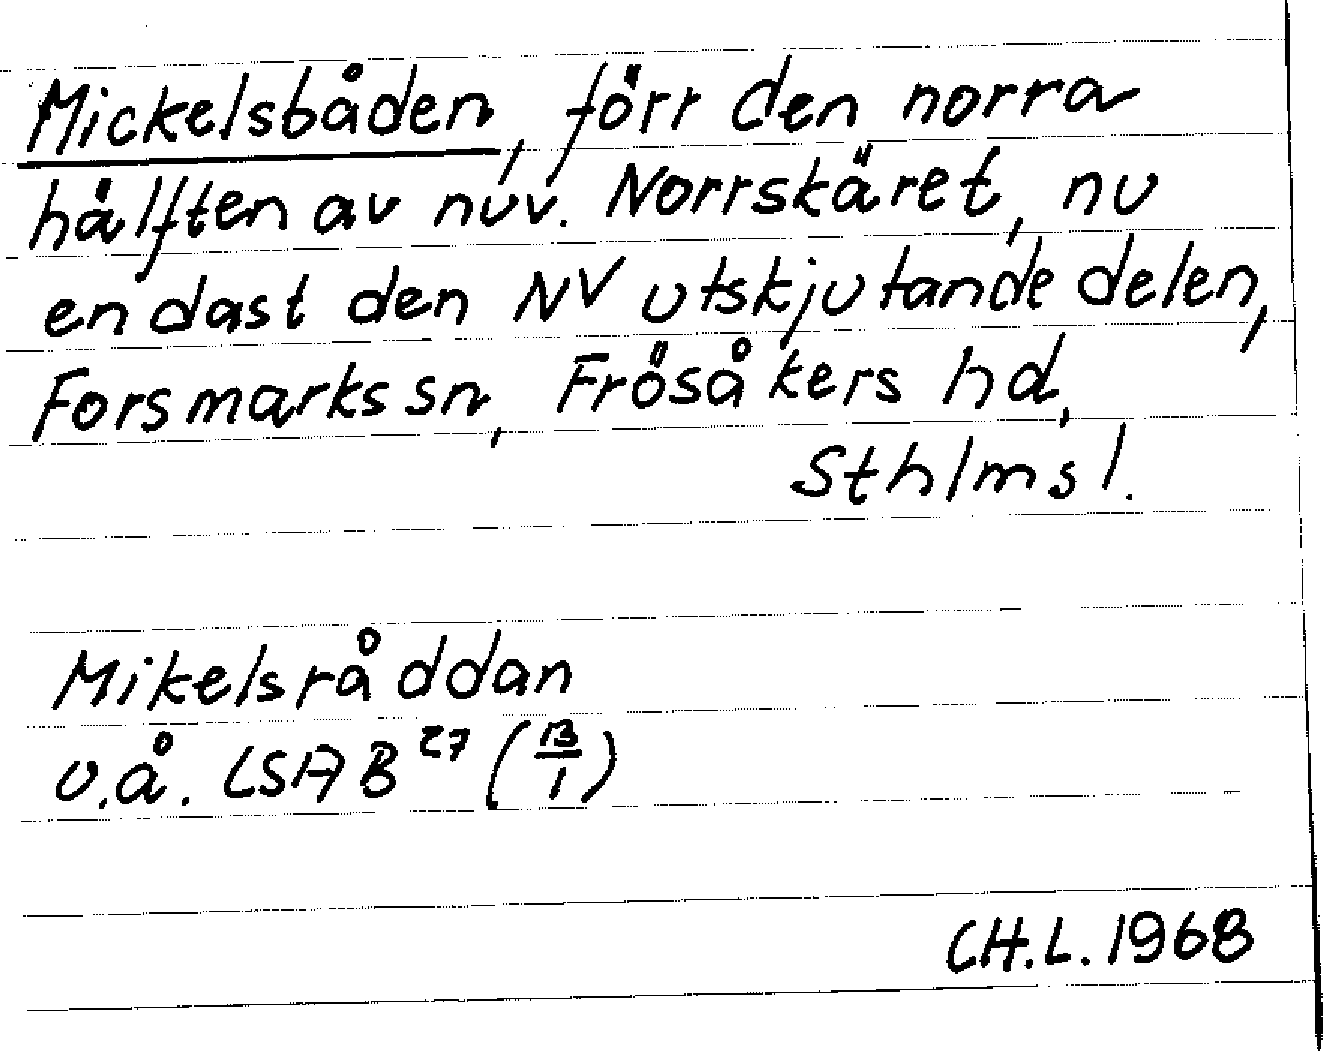 Mickelsbåden, förr den norra
hälften av nuv. Norrskäret, nu
endast den NV utskjutande delen,
Forsmarks sn, Frösåkers hd,
Sthlms l.
Mikelsråddan
u.å. LSA B 27 (13/1)
CH.L. 1968